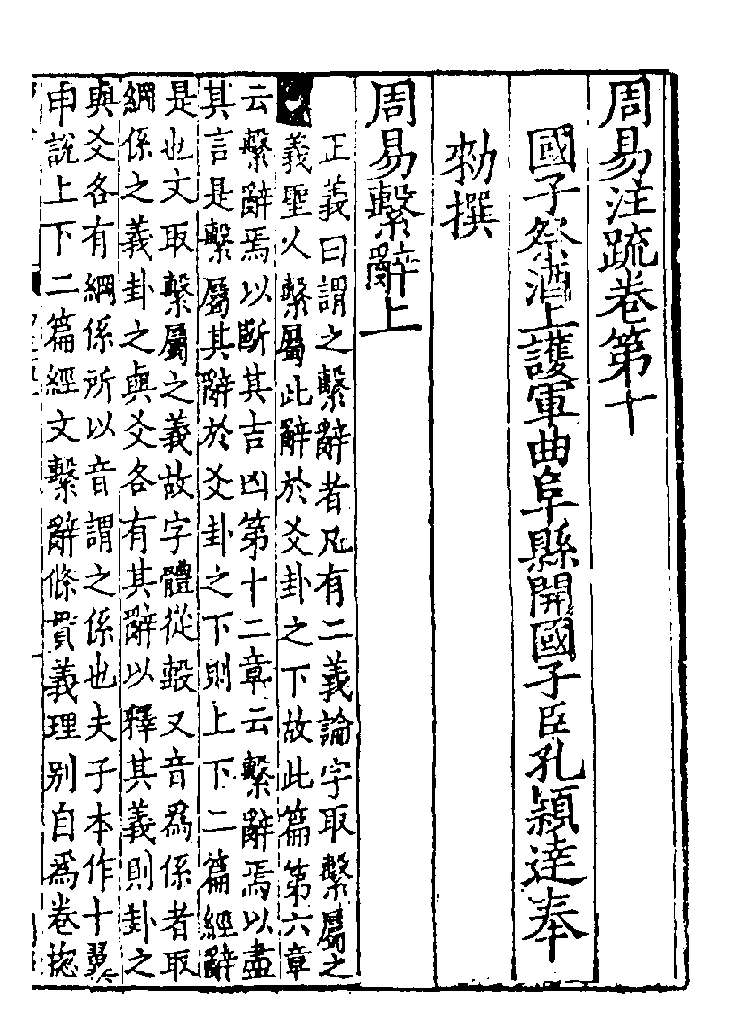 周易注疏卷第十
國子祭酒上護軍曲阜縣開國子臣孔穎達奉
勑撰
周易繫辭上
正義曰謂之繫辭者凡有二義論字取繫屬之
義聖人繫屬此辭於爻卦之下故此篇第六章
云繫辭焉以斷其吉凶第十二章云繫辭焉以盡
其言是繫屬其辭於爻卦之下則上下二篇經辭
是也文取繫屬之義故字體從毄又音為係者取
綱係之義卦之與爻各有其辭以釋其義則卦之
與爻各有綱係所以音謂之係也夫子本作十翼
申說上下二篇經文繫辭條貫義理别自為卷揔